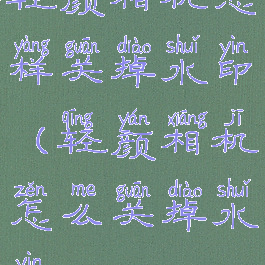 轻颜相机怎
yàng guān diào shuǐ yìn
样关掉水印
qīng yán xiàng jī
（轻颜相机
zěn me guān diào shuǐ
怎么关掉水
yìn